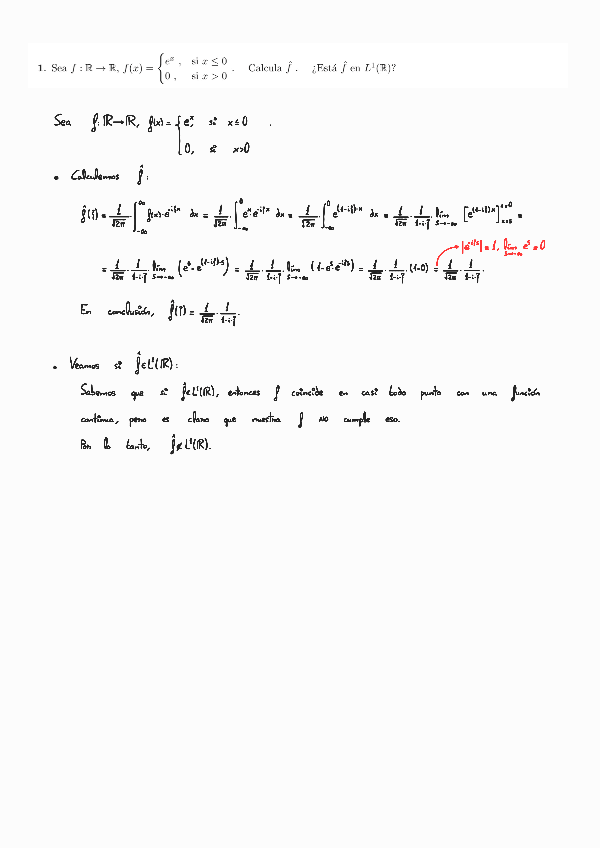 1. Sea f : ℝ → ℝ, f(x) = { e^x , si x ≤ 0
0 , si x > 0 . Calcula f̂ . ¿Está f̂ en L¹(ℝ)?
Sea f: ℝ→ℝ, f(x) = { e^x, si x≤0 .
0, si x>0
• Calculemos f̂ :
f̂(ξ) = 1/√2π · ∫_{-∞}^{∞} f(x)·e^{-iξx} dx = 1/√2π · ∫_{-∞}^{0} e^x·e^{-iξx} dx = 1/√2π · ∫_{-∞}^{0} e^{(1-iξ)·x} dx = 1/√2π · 1/(1-i·ξ) · lím_{s→-∞} [e^{(1-iξ)x}]_{x=s}^{x=0} =
|e^{-iξs}| = 1, lím_{s→-∞} e^s = 0
= 1/√2π · 1/(1-i·ξ) · lím_{s→-∞} (e^0 - e^{(1-iξ)·s}) = 1/√2π · 1/(1-i·ξ) · lím_{s→-∞} (1-e^s·e^{-iξs}) = 1/√2π · 1/(1-i·ξ) · (1-0) = 1/√2π · 1/(1-i·ξ) .
En conclusión, f̂(ξ) = 1/√2π · 1/(1-i·ξ) .
• Veamos si f̂ ∈ L¹(ℝ) :
Sabemos que si f̂ ∈ L¹(ℝ), entonces f coincide en casi todo punto con una función
continua, pero es claro que nuestra f NO cumple eso.
Por lo tanto, f̂ ∉ L¹(ℝ).